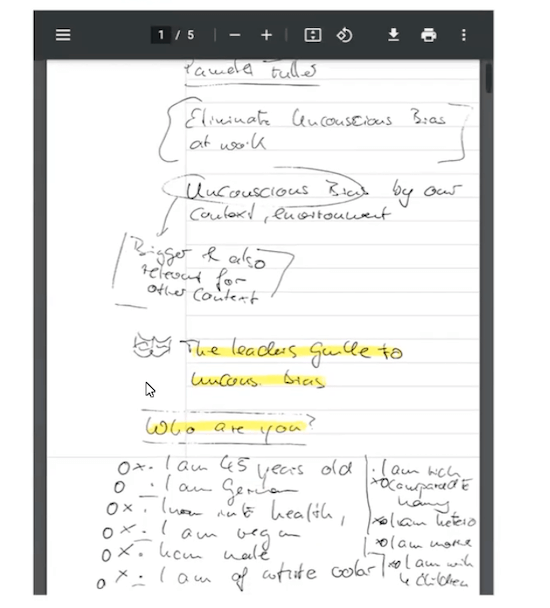 1 / 5
Pamela Fuller
Eliminate Unconscious Bias
at work
Unconscious Bias by our
context, environment
Bigger & also
relevant for
other context
The leaders guide to
uncous. bias
Who are you?
I am 45 years old
I am German
health,
I am vegan
male
I am of white color
I am rich
compared to
many
I am hetero
I am
I am with
4 children